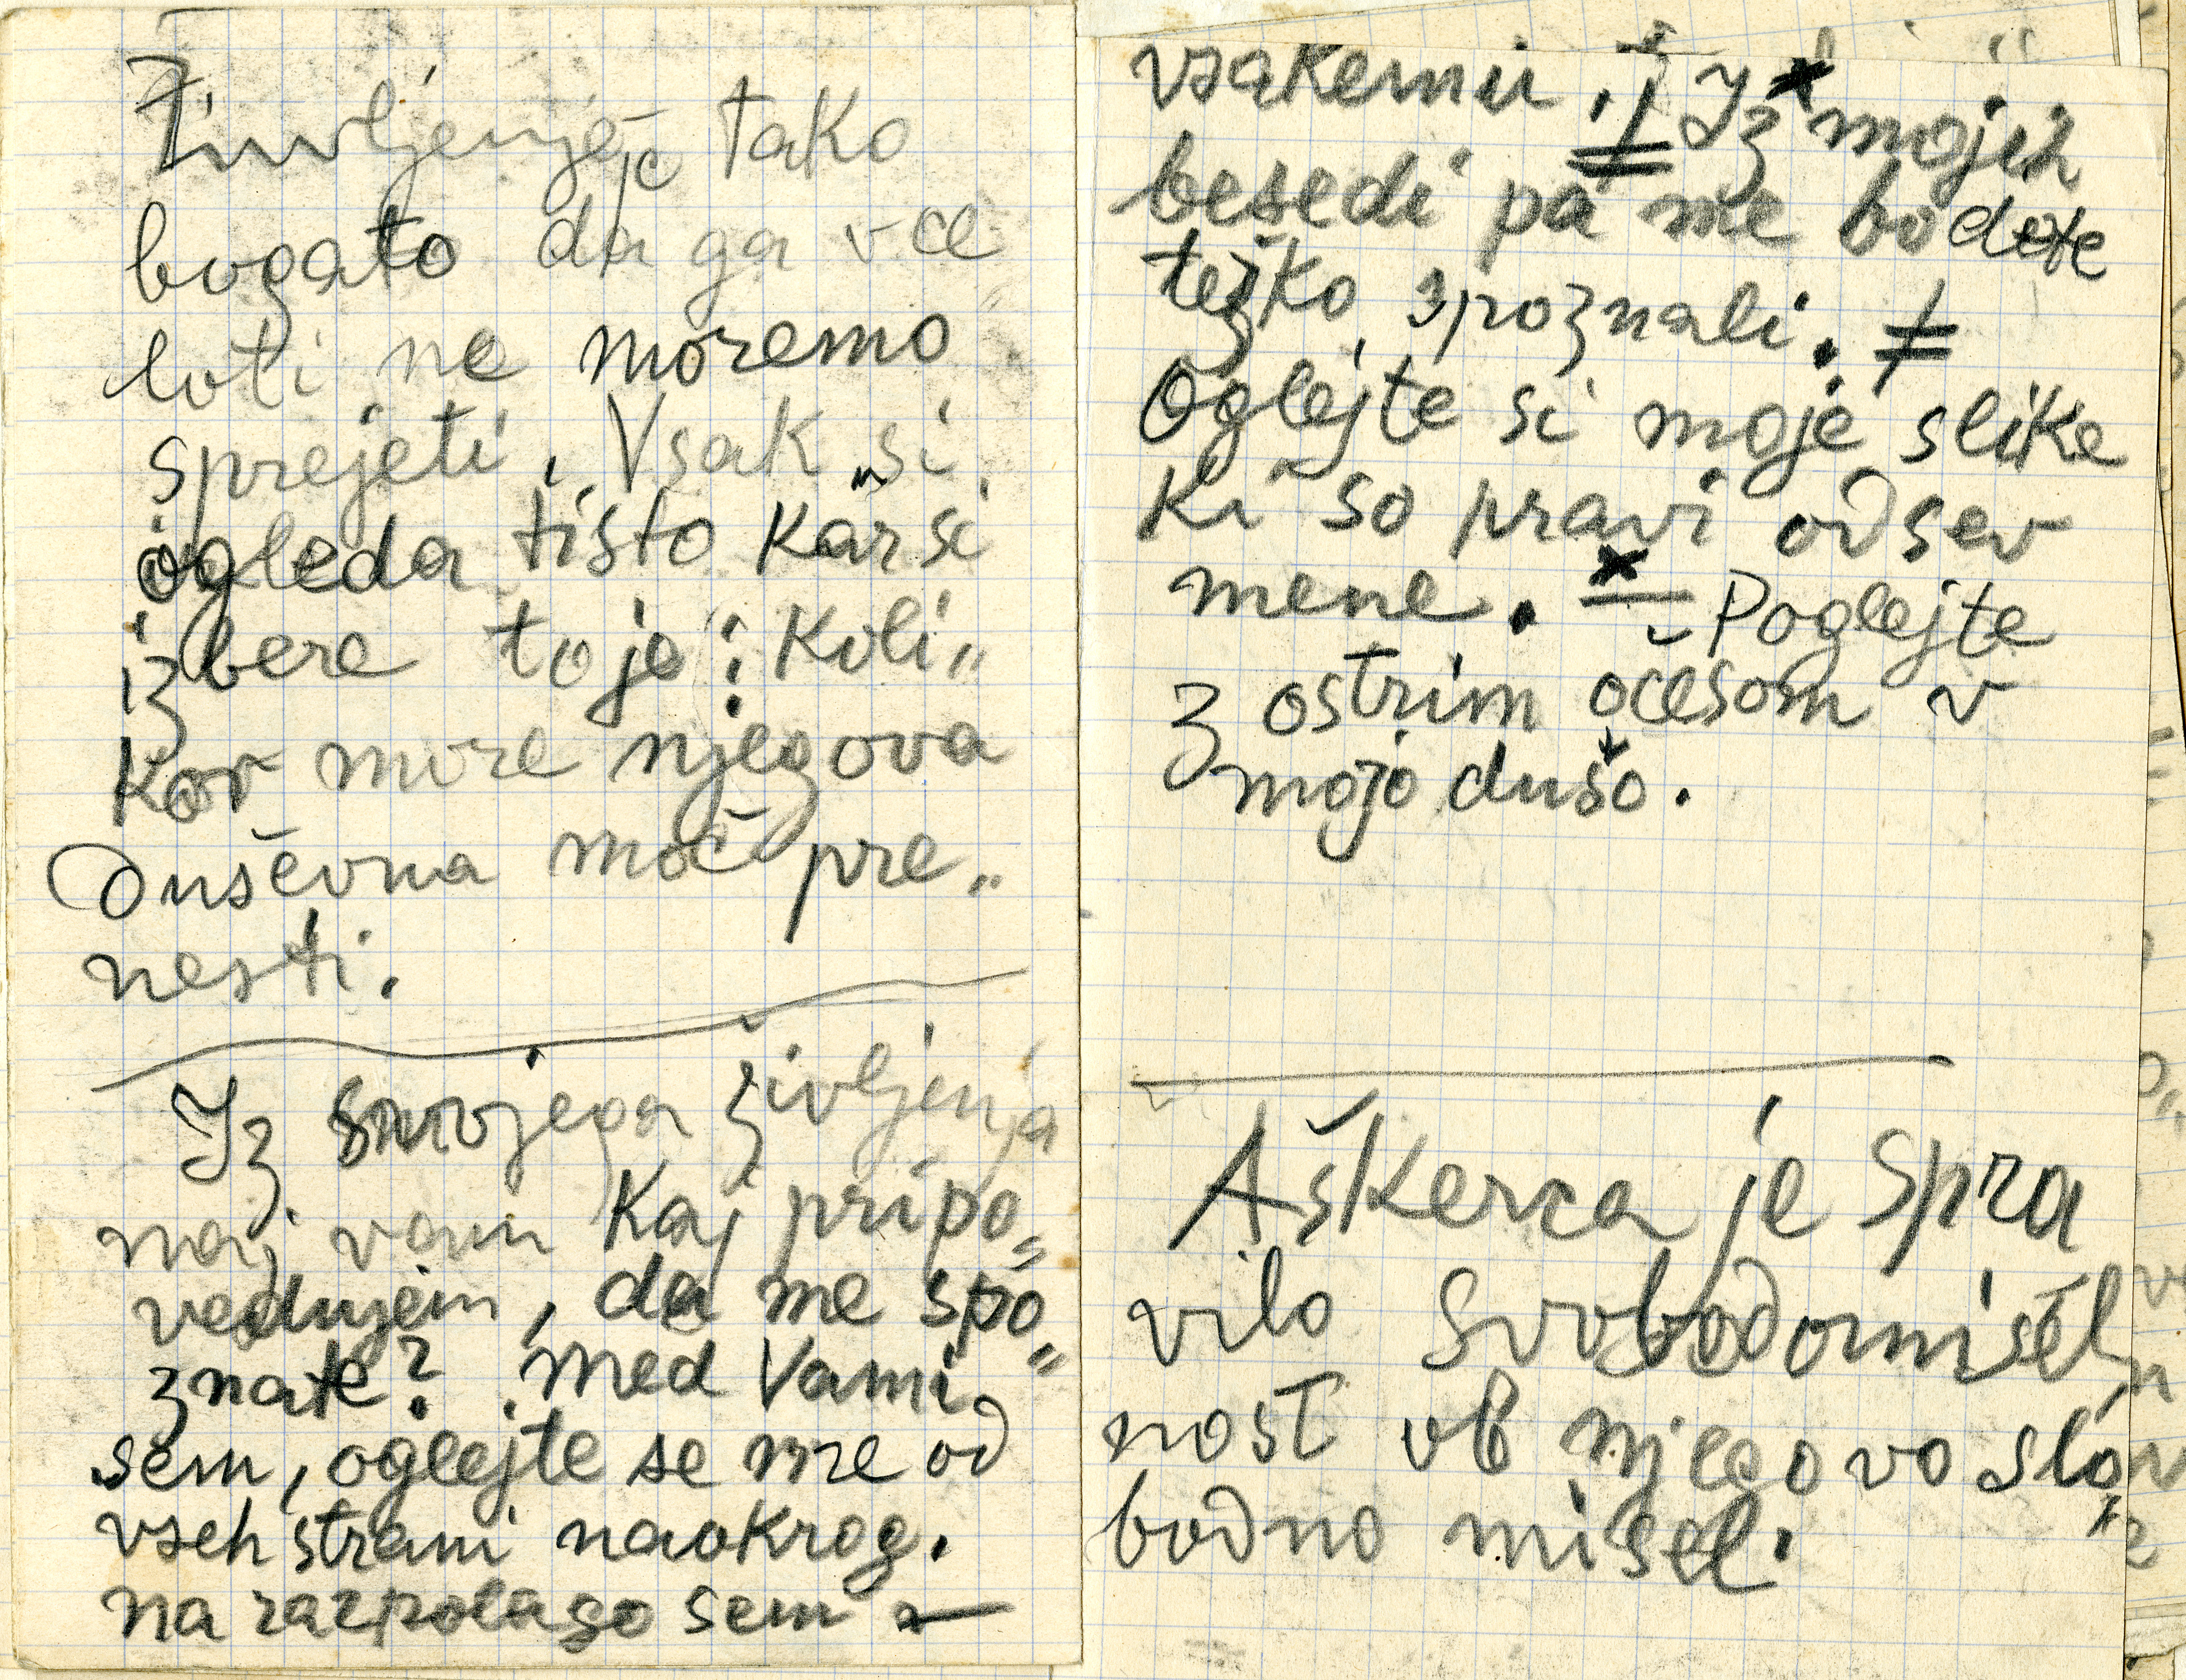 Življenje je tako
bogato da ga v ce
loti ne moremo
sprejeti. Vsak si
ogleda tisto kar si
izbere to je: koli„
kor more njegova
duševna moč pre„
nesti.
Iz svojega življenja
naj vam kaj pripo„
vedujem, da me spo„
znate? Med Vami
sem, oglejte se me od
vseh strani naokrog.
na razpolago sem
vsakemu. Iz mojih
besedi pa me bodete
težko spoznali.
Oglejte si moje slike
ki so pravi odsev
mene. Poglejte
z ostrim očesom v
mojo dušo.
Aškerca je spra
vilo svobodomisel
nost ob njegovo slo
bodno misel.